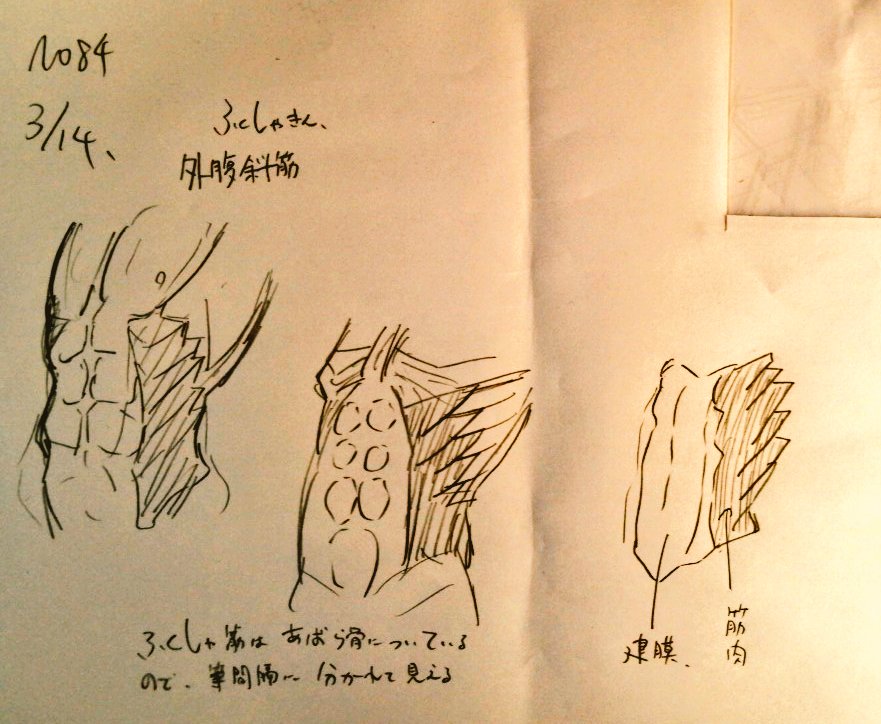 No84
3/14、
ふくしゃきん、
外腹斜筋
ふくしゃ筋は あばら骨についている
ので、等間隔に 分かれて見える
建膜、
筋肉